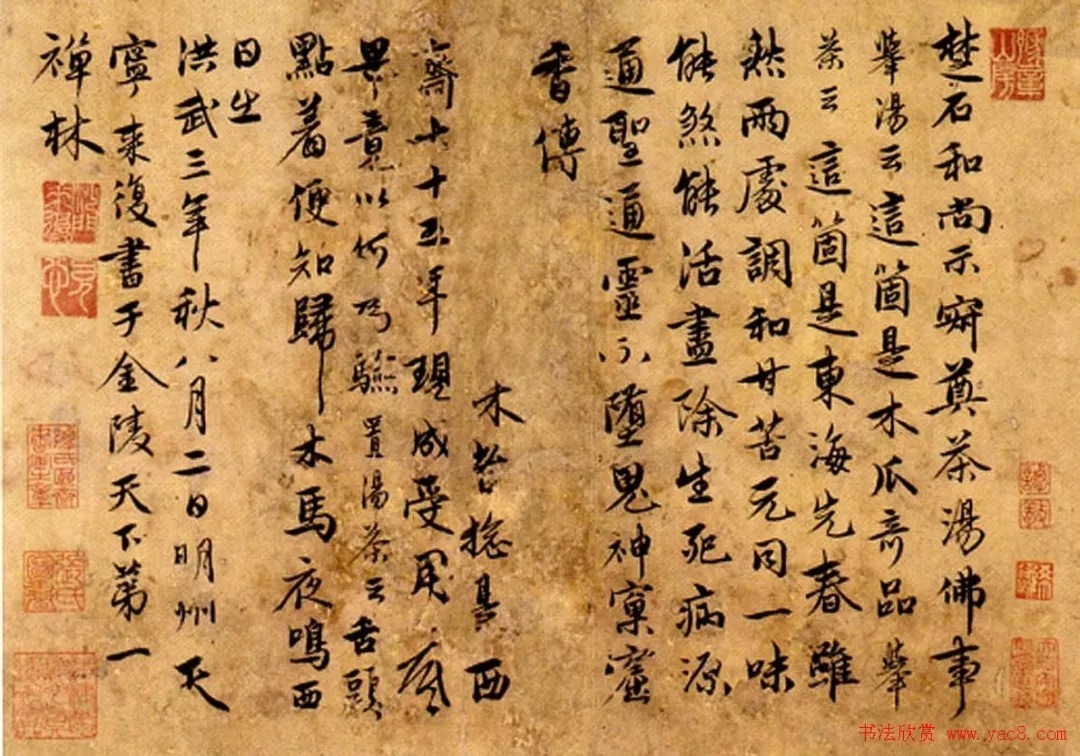 楚石和尚示寂奠茶湯佛事
舉湯云這箇是木瓜奇品舉
茶云這箇是東海先春雖
然兩處調和甘苦元同一味
能煞能活盡除生死病源
通聖通靈不墮鬼神窠窟
香傳
木
西
齋七十五年現成受用
界竟以何為驗置湯茶云舌頭
點着便知歸木馬夜鳴西
日出
洪武三年秋八月二日明州天
寧來復書于金陵天下第一
禪林
书法欣赏 www.yac8.com